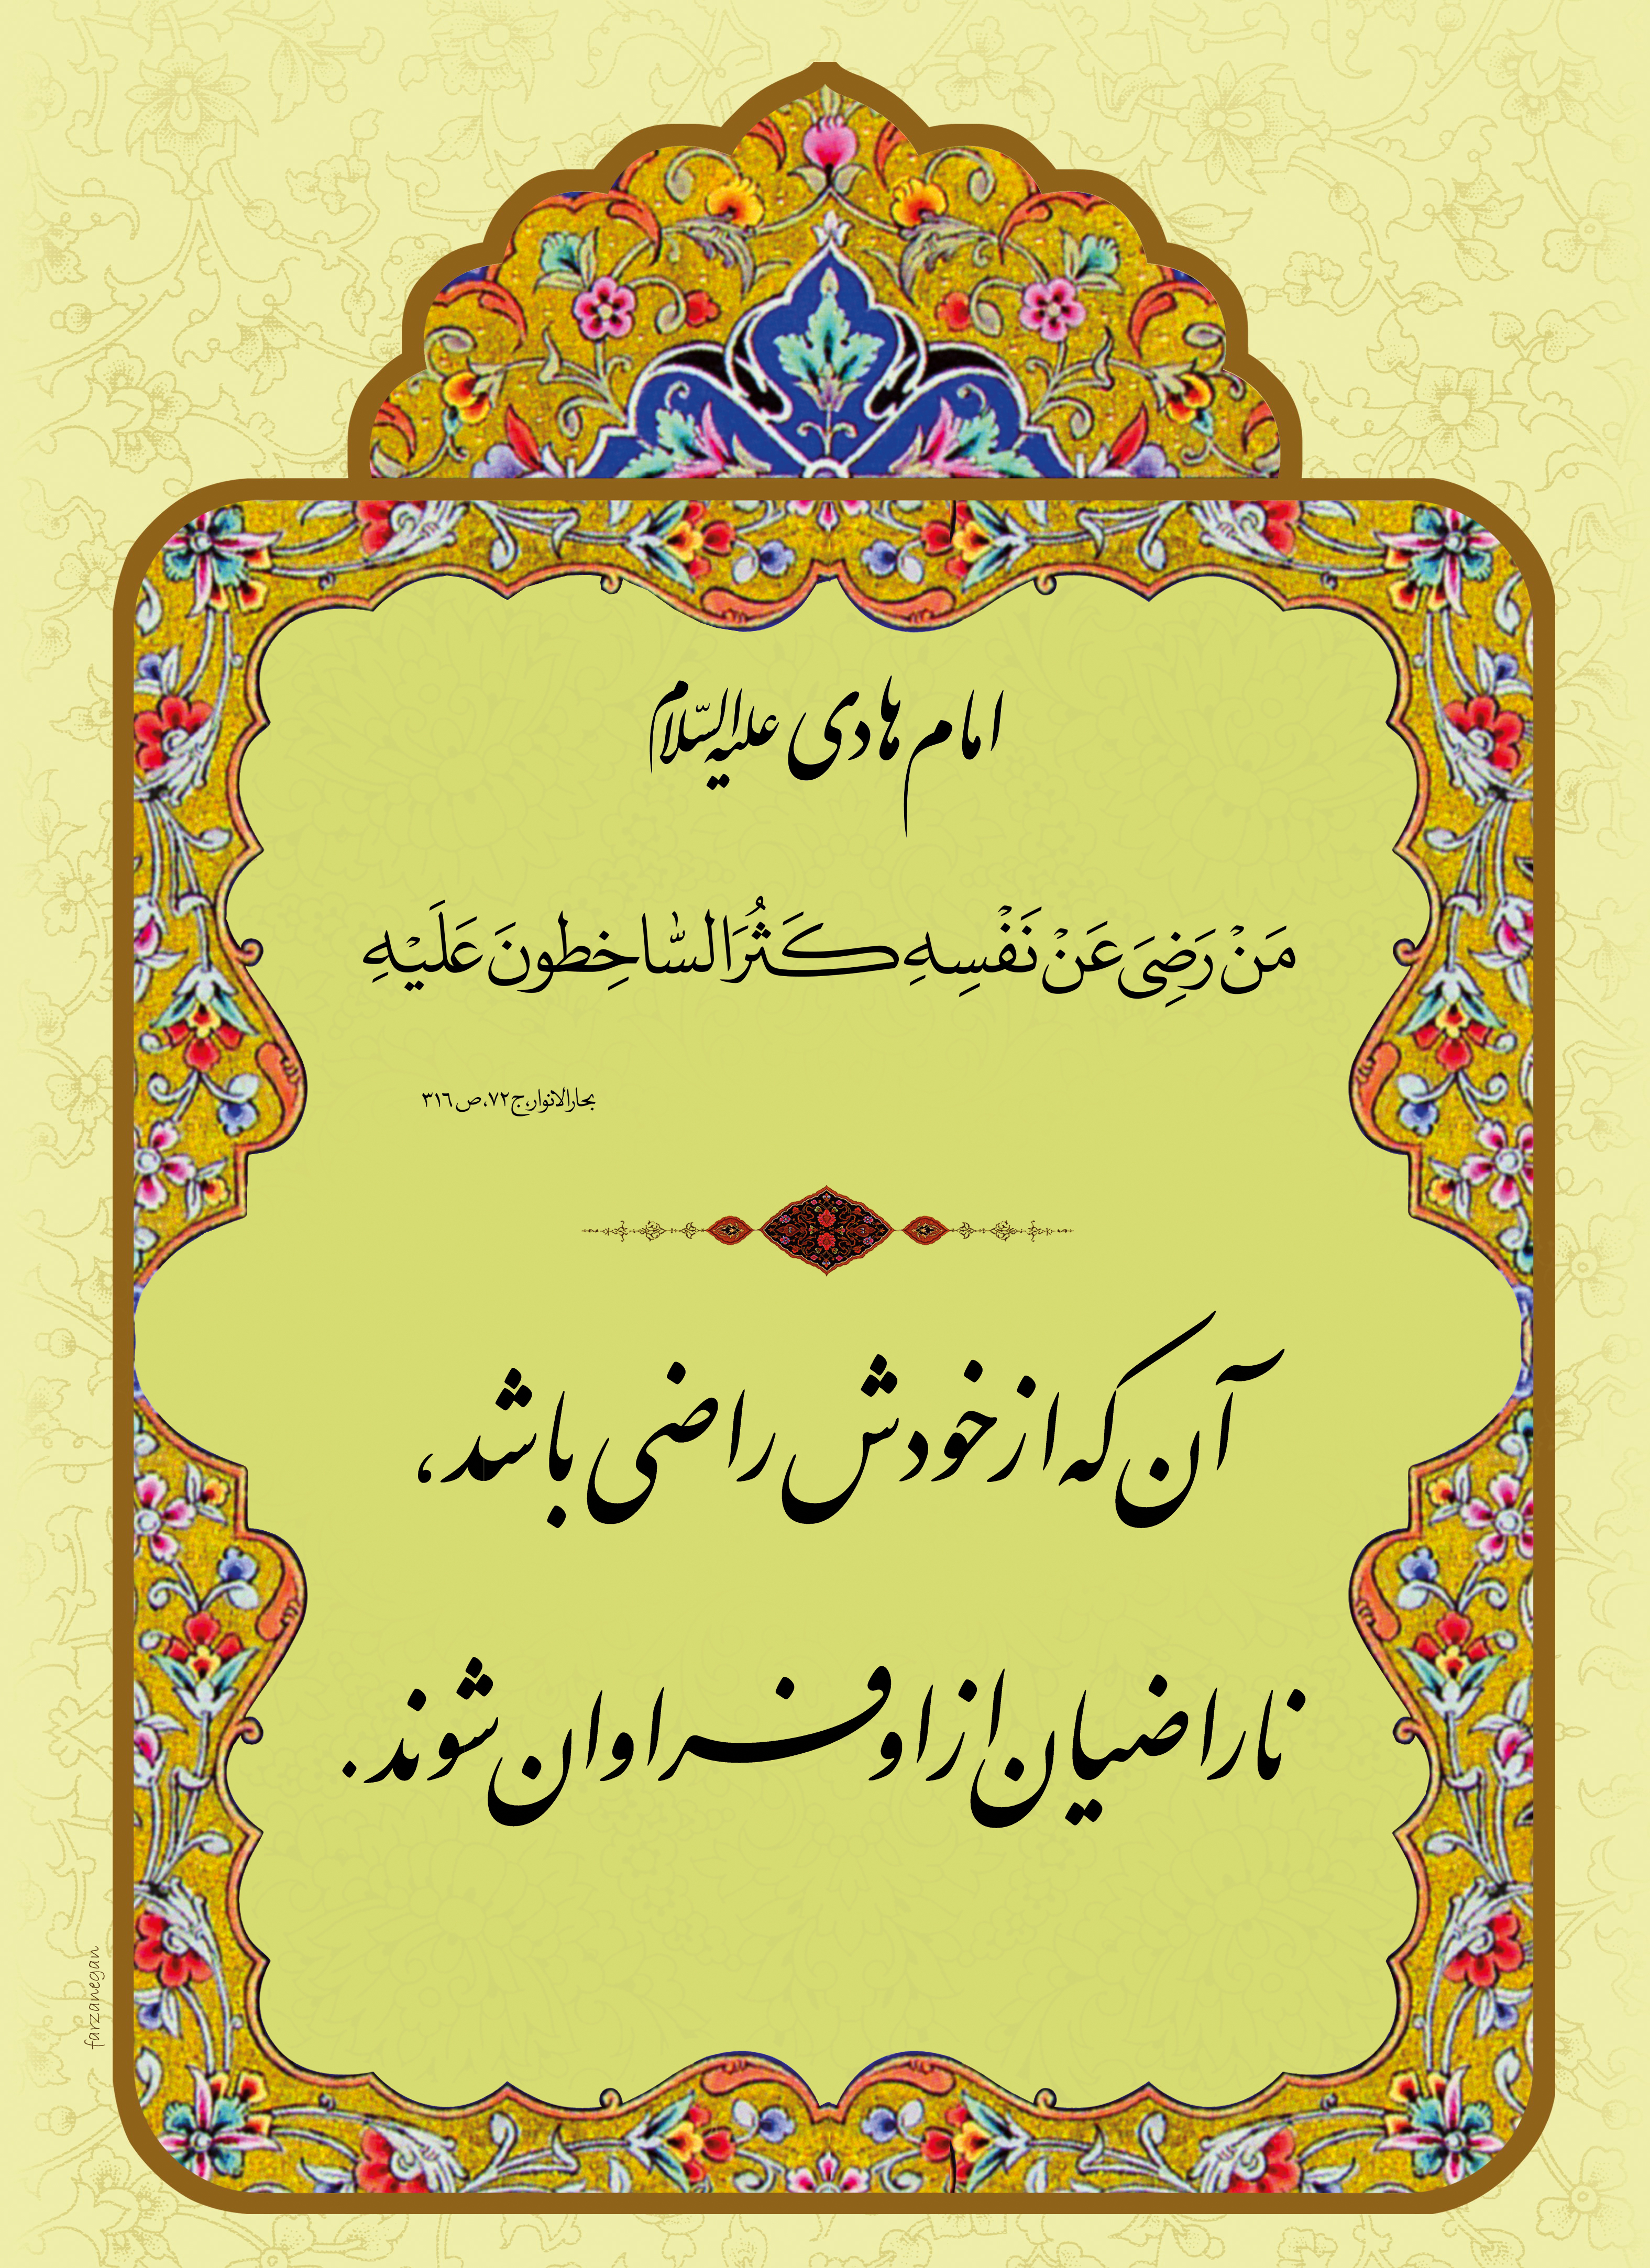 امام هادی علیه السّلام
مَنْ رَضِیَ عَنْ نَفْسِهِ کَثُرَ السّاخِطونَ عَلَیْهِ
بحارالانوار،ج۷۲،ص۳۱۶
آن که از خودش راضی باشد،
ناراضیان از او فراوان شوند.
farzanegan